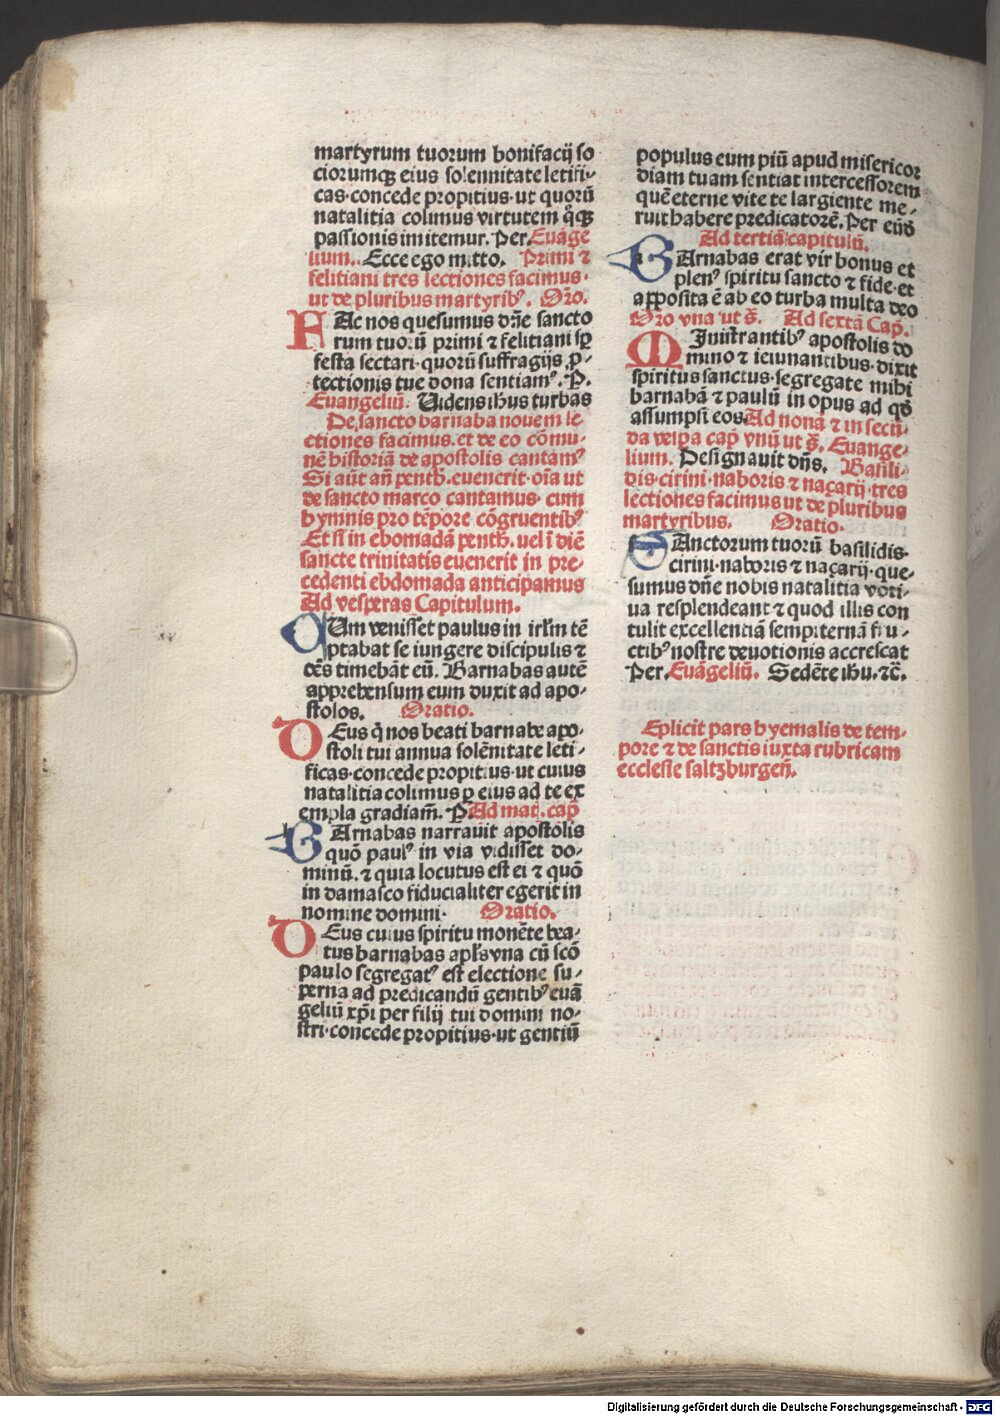 martyrum tuorum bonifacij so
ciorumqꝫ eius solennitate letifi-
cas·concede propitius·ut quorū
natalitia colimus virtutem q̊qꝫ
passionis imitemur. Per. Euāge
lium. Ecce ego mitto. Primi ⁊
felitiani tres lectiones facimus·
ut de pluribus martyribꝰ. Oro.
FAc nos quesumus dn̄e sancto
rum tuorū primi ⁊ felitiani sp̱
festa sectari·quorū suffragijs p̱-
tectionis tue dona sentiamꝰ. P.
Euangeliū. Uidens ihus turbas
De sancto barnaba nouem le-
ctiones facimus. et de eo cōmu-
nē historiā de apostolis cantamꝰ
Si aūt an̄ penth. euenerit·oīa ut
de sancto marco cantamus· cum
hymnis pro tēpore cōgruentibꝰ
Et si in ebomadā penth. uel ī diē
sancte trinitatis euenerit in pre-
cedenti ebdomada anticipamus
Ad vesperas Capitulum.
CUm venisset paulus in irlm tē
ptabat se iungere discipulis ⁊
oēs timebāt eū. Barnabas autē
apprehensum eum duxit ad apo-
stolos. Oratio.
DEus q̄ nos beati barnabe apo-
stoli tui annua solēnitate leti-
ficas·concede propitius·ut cuius
natalitia colimus p̱ eius ad te ex
empla gradiam̄. P Ad mat. cap̄
BArnabas narrauit apostolis
quō paulꝰ in via vidisset do-
minū. ⁊ quia locutus est ei ⁊ quō
in damasco fiducialiter egerit in
nomine domini· Oratio.
DEus cuius spiritu monēte bea-
tus barnabas apl's vna cū scō
paulo segregatꝰ est electione su-
perna ad predicandū gentibꝰ euā
geliū xp̄i per filij tui domini no-
stri·concede propitius·ut gentiū
populus eum piū apud misericor
diam tuam sentiat intercessorem
quē eterne vite te largiente me-
ruit habere predicatorē. Per eūd
Ad tertiā capitulū.
BArnabas erat vir bonus et
plenꝰ spiritu sancto ⁊ fide·et
apposita ē ab eo turba multa deo
Oro vna ut s̄. Ad sextā Cap̄.
MInistrantibꝰ apostolis do
mino ⁊ ieiunantibus·dixit
spiritus sanctus·segregate mihi
barnabā ⁊ paulū in opus ad qd̄
assumpsi eos. Ad nonā ⁊ in secū-
da vespa cap̄ vnū ut s̄. Euange-
lium. Designauit dn̄s. Basili-
dis·cirini·naboris ⁊ naçarij·tres
lectiones facimus ut de pluribus
martyribus. Oratio.
SAnctorum tuorū basilidis·
cirini·naboris ⁊ naçarij·que-
sumus dn̄e nobis natalitia voti-
ua resplendeant ⁊ quod illis con
tulit excellentiā sempiternā fru-
ctibꝰ nostre deuotionis accrescat
Per. Euāgeliū. Sedēte ihu.⁊c̄.
Eplicit pars hyemalis de tem-
pore ⁊ de sanctis iuxta rubricam
ecclesie saltzburgen̄.
Digitalisierung gefördert durch die Deutsche Forschungsgemeinschaft - DFG